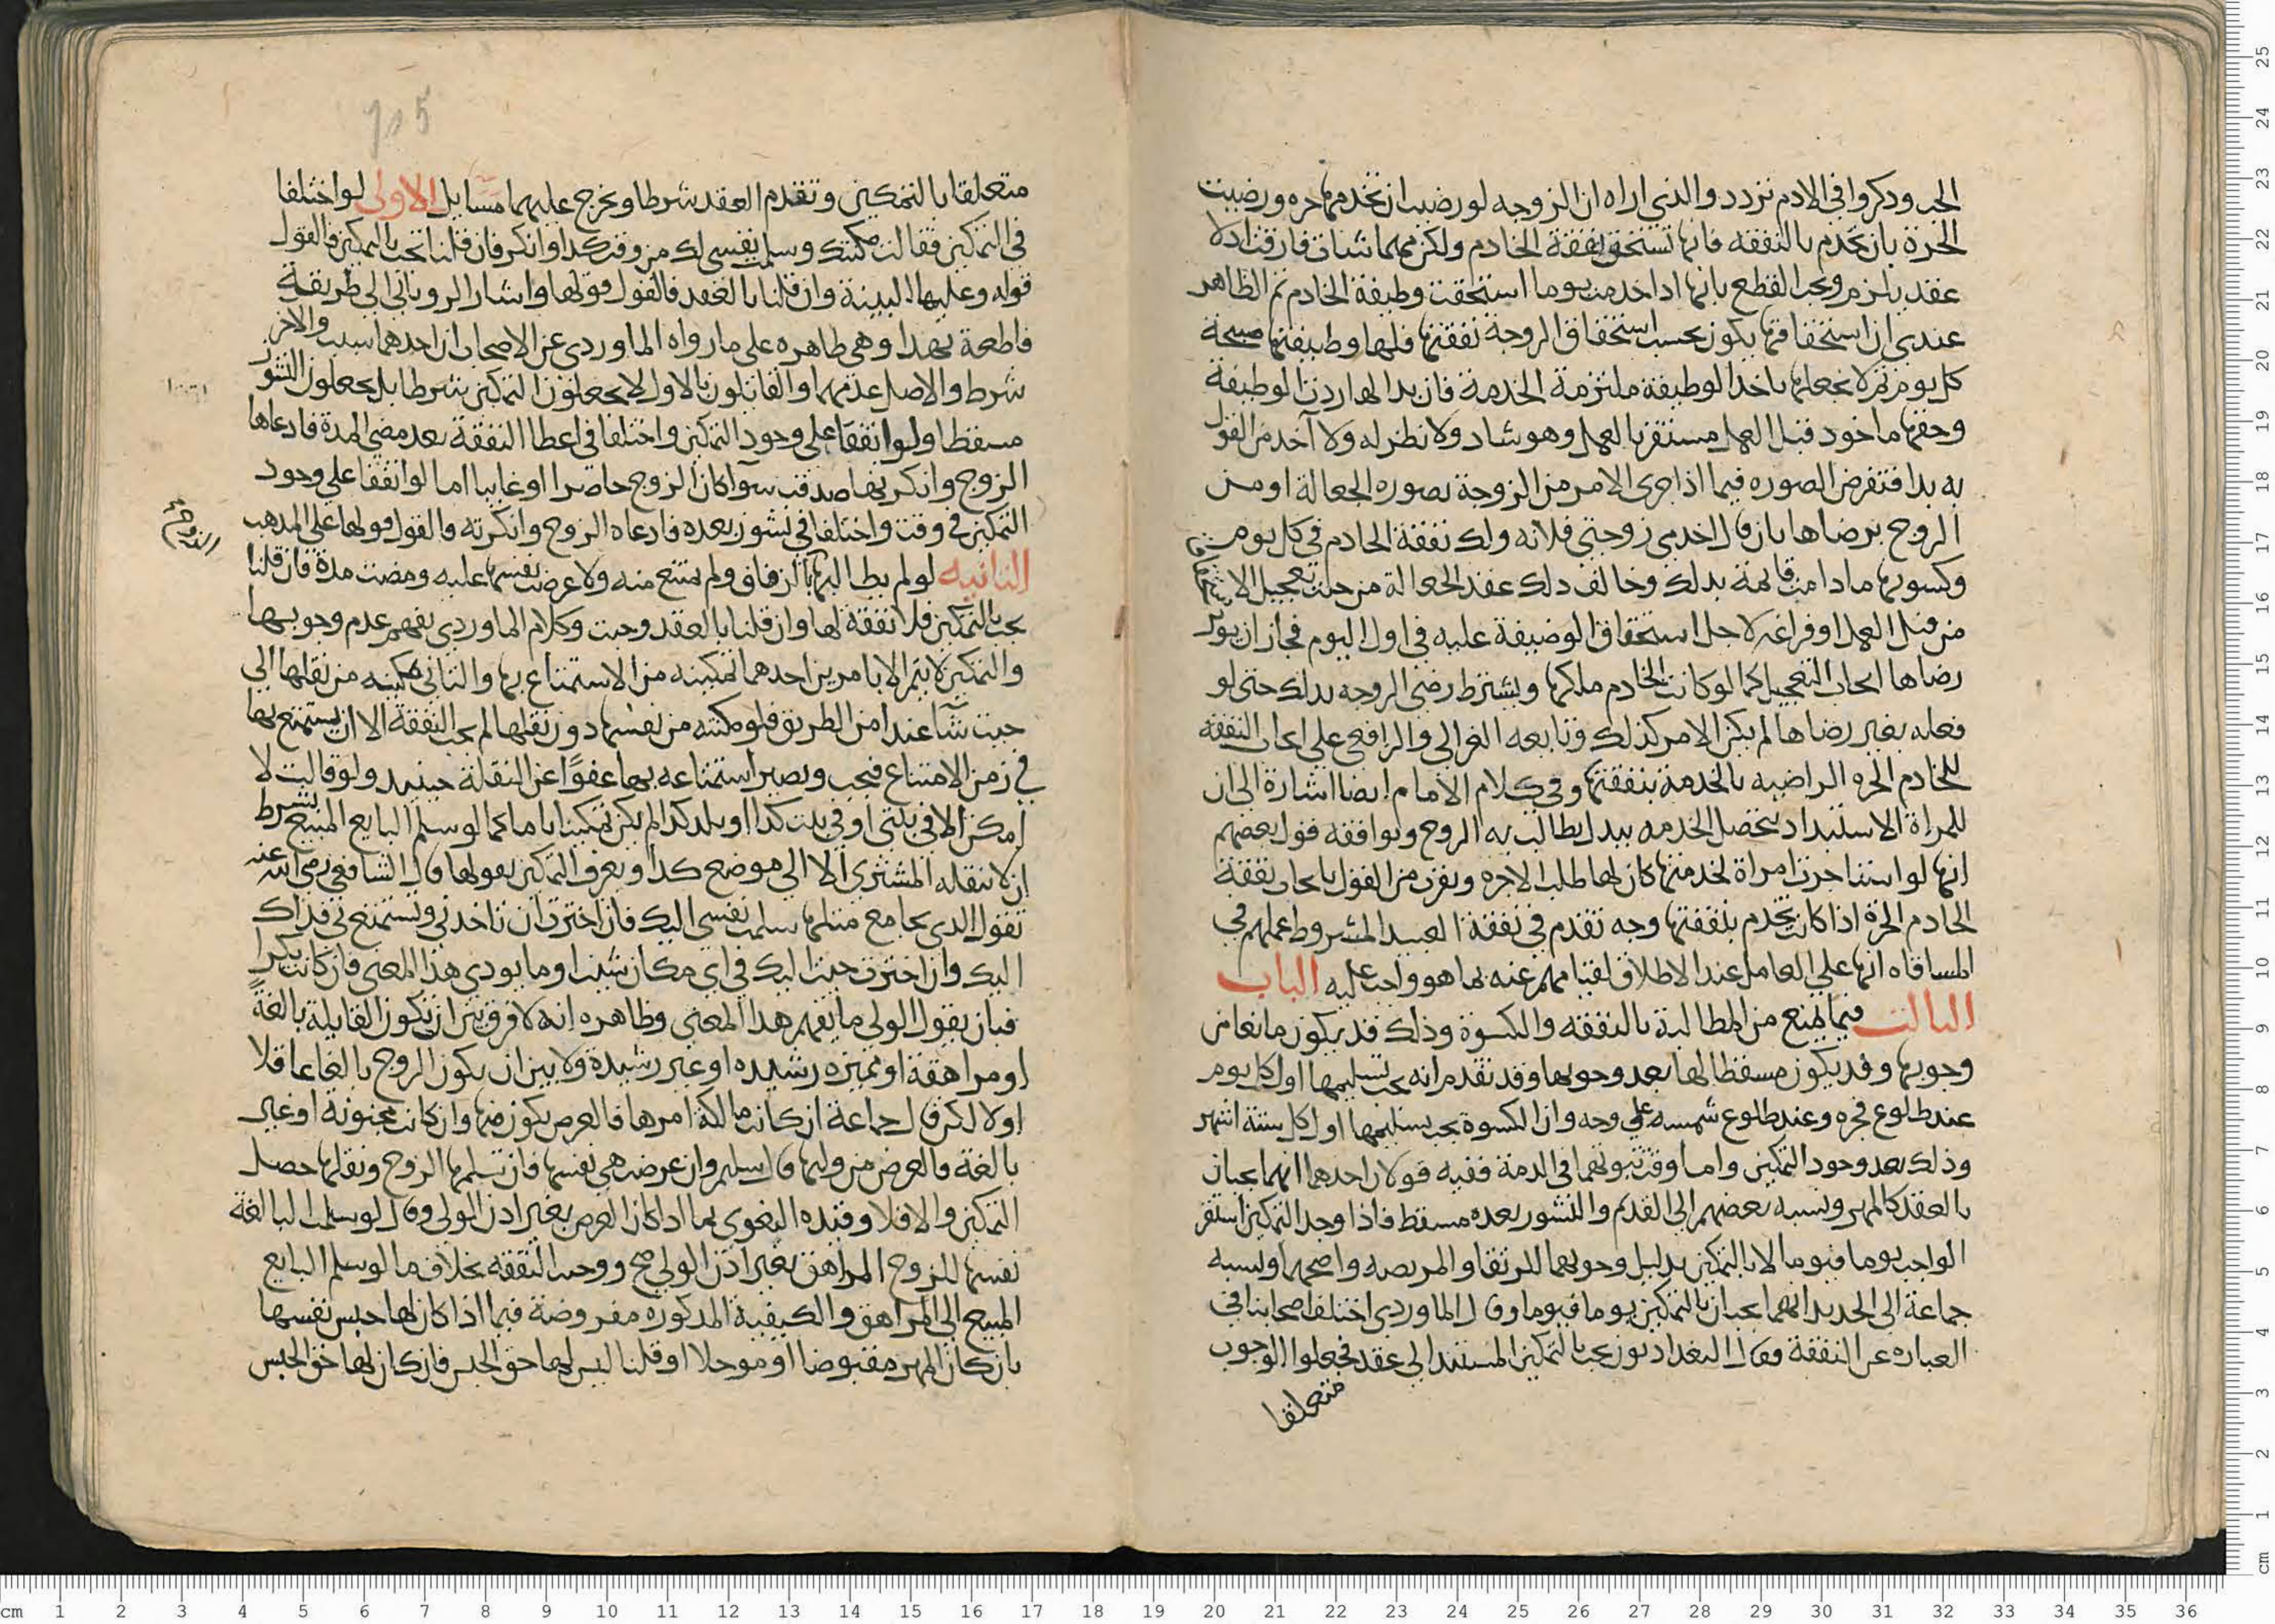 الجب وذكروا في الادم تردد والذي اراه ان الزوجه لو رضيت ان تخدمها حره ورضيت
الحرة بان تخدم بالنفقه فانها تستحق نفقة الخادم ولكن مهما شات فارقت اذ لا
عقد يلزم ويجب القطع بانها اذا خدمت يوما استحقت وظيفة الخادم ثم الظاهر
عندي ان استحقاقها يكون بحسب استحقاق الزوجة نفقتها فلها وظيفتها صبيحة
كل يوم ثم لا نجعلها باخذ الوظيفة ملتزمة الخدمة فان بدا لها ردت الوظيفة
وحقها ماخوذ قبل العمل مستقر بالعمل وهو شاد ولا نظير له ولا آخذ من القول
به بدا فتفرض الصوره فيما اذا جرى الامر من الزوجة بصوره الجعالة او من
الزوج برضاها بان قال اخدمي زوجتي فلانه ولك نفقة الخادم في كل يوم
وكسوتها ما دامت قائمة بذلك وخالف ذلك عقد الجعالة من حيث تعجيل الاستحقاق
من قبل العمل او فراغه لاجل استحقاق الوضيفة عليه في اول اليوم فجاز ان يوثر
رضاها ايجاب التعجيل كما لو كانت الخادم ملكها ويشترط رضى الزوجه بذلك حتى لو
فعله بغير رضاها لم يكن الامر كذلك وتابعه الغزالي والرافعي على ايجاب النفقة
للخادم الحره الراضيه بالخدمة بنفقتها وفي كلام الامام ايضا اشارة الى ان
للمراة الاستبداد بتحصل الخدمه ببدل يطالب به الزوج ويوافقه قول بعضهم
انها لو استاجرت امراة لخدمتها كان لها طلب الاجره ويقرب من القول بايجاب نفقة
الخادم الحرة اذا كانت تخدم بنفقتها وجه تقدم في نفقة العبيد المشروط عملهم في
المساقاه انها على العامل عند الاطلاق لقيامهم عنه بما هو واجب عليه الباب
الثالث فيما يمنع من المطالبة بالنفقه والكسوة وذلك قد يكون مانعا من
وجوبها وقد يكون مسقطا لها بعد وجوبها وقد تقدم انه يجب تسليمها اول كل يوم
عند طلوع فجره وعند طلوع شمسه على وجه وان الكسوة يجب تسليمها اول كل ستة اشهر
وذلك بعد وجود التمكين واما وقت ثبوتهما في الذمة ففيه قولان احدهما انهما يجبان
بالعقد كالمهر ونسبه بعضهم الى القديم والنشوز بعده مسقط فاذا وجد التمكين استقر
الواجب يوما فيوما لا بالتمكين بدليل وجوبهما للرتقا والمريضه واصحهما ونسبه
جماعة الى الجديد انهما يجبان بالتمكين يوما فيوما وقال الماوردي اختلف اصحابنا في
العباره عن النفقة فقال البغداديون يجب بالتمكين المستند الى عقد فجعلوا الوجوب
متعلقا
متعلقا بالتمكين وتقدم العقد شرطا ويخرج عليهما مسايل الاولى لو اختلفا
في التمكين فقالت مكنتك وسلمت نفسي لك من وقت كذا وانكر فان قلنا تجب بالتمكين فالقول
قوله وعليها البينة وان قلنا بالعقد فالقول قولها واشار الروياني الى طريقة
قاطعة بهذا وهي ظاهره على ما رواه الماوردي عن الاصحاب ان احدهما سبب والاخر
شرط والاصل عدمهما والقائلون بالاول لا يجعلون التمكين شرطا بل يجعلون النشوز
مسقطا ولو اتفقا على وجود التمكين واختلفا في اعطا النفقة بعد مضي المدة فادعاها
الزوج وانكرتها صدقت سوآ كان الزوج حاضرا او غايبا اما لو اتفقا على وجود
التمكين في وقت واختلفا في نشوز بعده فادعاه الزوج وانكرته فالقول قولها على المذهب
الثانيه لو لم يطالبها بالزفاف ولم تمتنع منه ولا عرضت نفسها عليه ومضت مدة فان قلنا
يجب بالتمكين فلا نفقة لها وان قلنا بالعقد وجبت وكلام الماوردي يفهم عدم وجوبها
والتمكين لا يتم الا بامرين احدهما تمكينه من الاستمتاع بها والثاني تمكينه من نقلها الى
حيث شآ عند امن الطريق فلو مكنته من نفسها دون نقلها لم تجب النفقة الا ان يستمتع بها
في زمن الامتناع فتجب ويصير استمتاعه بها عفوًا عن النقلة حينيد ولو قالت لا
امكن الا في بيتي او في بيت كذا او بلد كذا لم يكن تمكينا تاما كما لو سلم البايع المبيع بشرط
ان لا ينقله المشتري الا الى موضع كذا ويعرف التمكين بقولها قال الشافعي رضي الله عنه
تقول الذي يجامع مثلها سلمت نفسي اليك فان اخترت ان تاخذني وتستمتع بي فذاك
اليك وان اخترت جيت اليك في اي مكان شيت او ما يودي هذا المعنى فان كانت بكرا
فبان يقول الولي ما يفهم هذا المعنى وظاهره انه لا فرق بين ان تكون القايلة بالغةً
او مراهقة او مميزه رشيده او غير رشيدة ولا بين ان يكون الزوج بالغا عاقلا
او لا لكن قال جماعة ان كانت مالكة امرها فالعرض يكون منها وان كانت مجنونه او غير
بالغة فالعرض من وليها قال سليم وان عرضت هي نفسها فان تسلمها الزوج ونقلها حصل
التمكين والا فلا وقيده البغوي بما اذا كان العرض بغير اذن الولي وقال لو سلمت البالغة
نفسها للزوج المراهق بغير اذن الولي صح ووجبت النفقه بخلاف ما لو سلم البايع
المبيع الى المراهق والكيفية المذكوره مفروضة فيما اذا كان لها حبس نفسها
بان كان المهر مقبوضا او موجلا او قلنا ليس لها حق الحبس فان كان لها حق الحبس